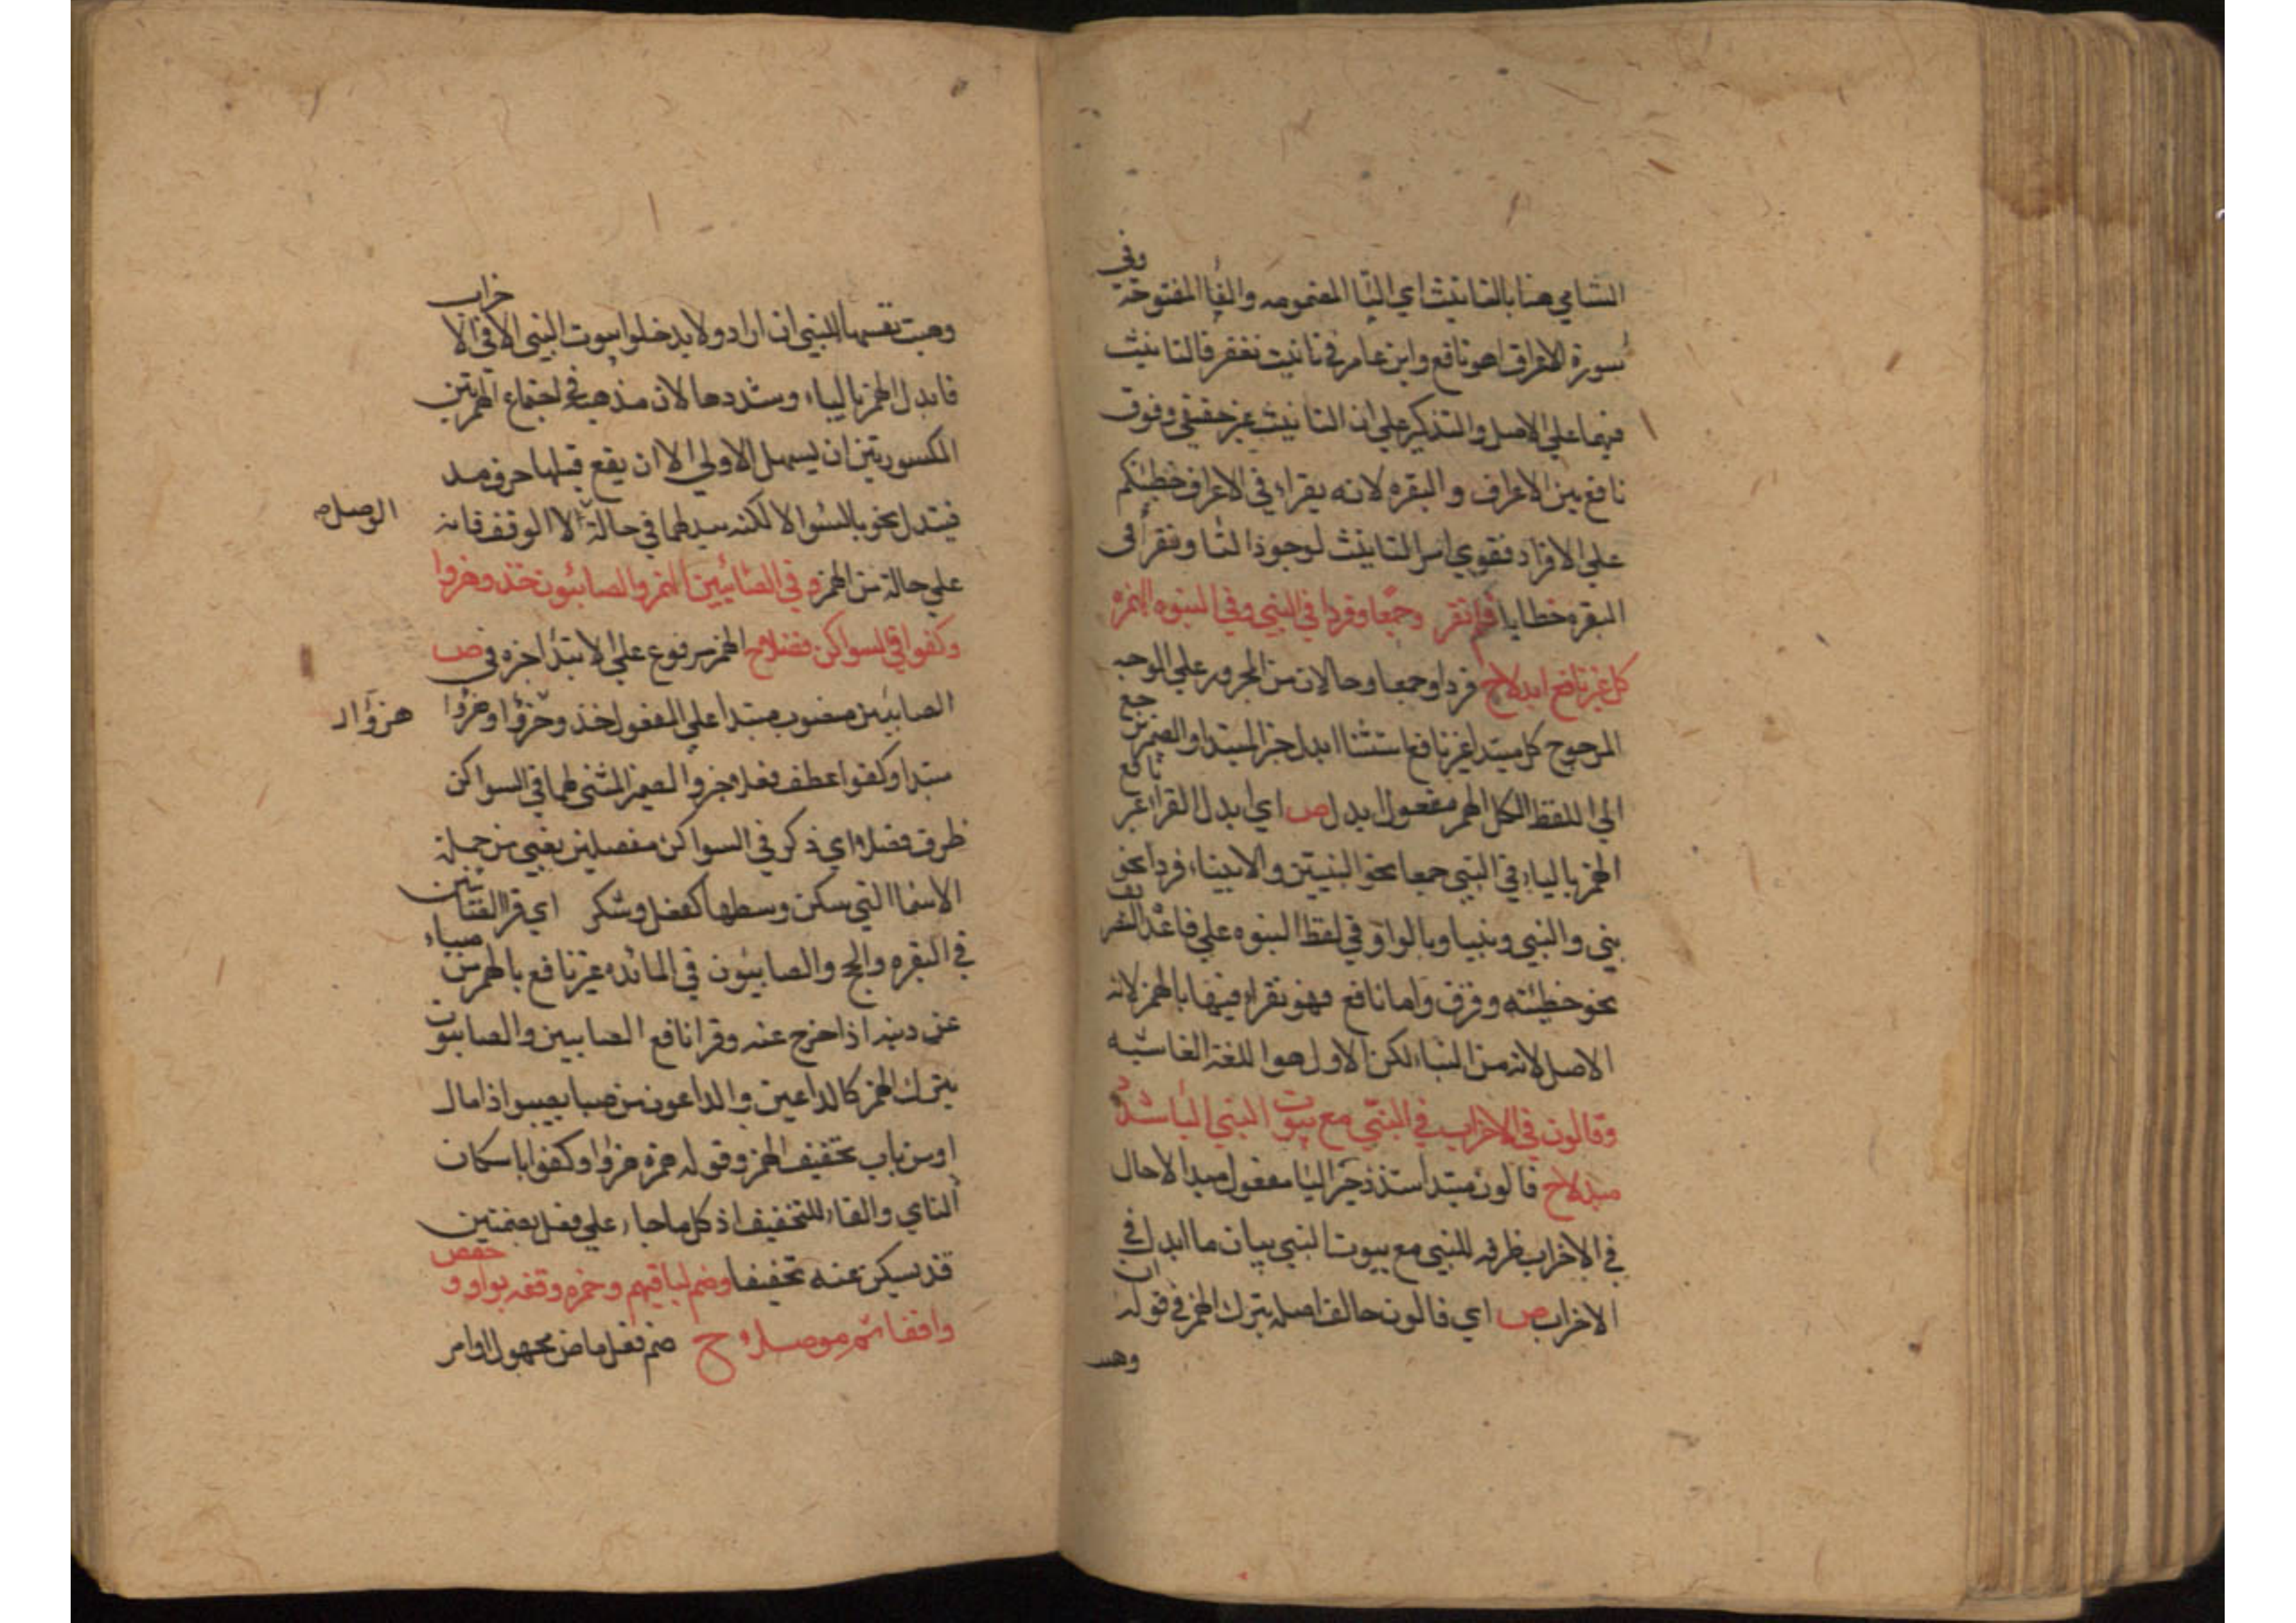 الشامي هنا بالتانيث اي التا المضمومه والفا المفتوحة وفي
سورة الاعراف هو نافع وابن عامر في تانيث تغفر فالتانيث
فيهما علي الاصل والتذكير علي ان التانيث غير حقيقي وفرق
نافع بين الاعراف والبقره لانه يقراء في الاعراف خطيئتكم
علي الافراد فقوي امر التانيث لوجود التا ويقرأ في
البقره خطايا فلم تقر وجمعا وفردا في النبي وفي النبوه الهمزه
كل غير نافع ابدلا ح فردا وجمعا وحالان من المجرور علي الوجه
المرجوح كل مبتدا غير نافع استثنا ابدل خبر المبتدا والضمير راجع
الي اللفظ الكل الهمز مفعول ابدل ص اي ابدل القراء غير نافع
الهمز بالياء في النبي جمعا نحو النبيين والانبياء وفردا نحو
نبي والنبي ونبيا وبالواو في لفظ النبوه علي قاعدة التخفيف
نحو خطيئته وقرق واما نافع فهو يقراء فيها بالهمز لانه
الاصل لانه من النباء لكن الاول هو اللغة الفاشيه
وقالون في الاحزاب في النبي مع بيوت النبي اليا شدد
مبدلا ح قالون مبتدا شدد خبر اليا مفعول مبدلا حال
في الاحزاب ظرف للنبي مع بيوت النبي بيان ما ابدل في
الاحزاب ص اي قالون خالف اصله بترك الهمز في قوله ان
وهبـ
وهبت نفسها للنبي ان اراد ولا يدخلوا بيوت النبي الا في الاحزاب
فابدل الهمز بالياء وشددها لان مذهبه في اجتماع الهمزتين
المكسورتين ان يسهل الاولي الا ان يقع قبلها حرف مد
فيتدل نحو بالسوا الا لكنه يبدلهما في حالة الا الوقف فانه
الوصل ص
علي حالة من الهمز وفي الصائبين الهمز والصابئون خذ وهزوا
وكفوا في السواكن فصلا ح الهمز مرفوع علي الابتدا خبره في ص
الصابئين منصوب مبتدا علي المفعول خذ وهزؤا وهزوا
هزؤا الـ
مبتدا وكفوا عطف فصلا خبر والضمير المثني لهما في السواكن
ظرف فصلا اي ذكر في السواكن مفصلين يعني من جملة
الاسما التي سكن وسطها كفعل وشكر اي قرا الصابئين
في البقره والحج والصابئون في المائده غير نافع بالهمز من صباء
عن دينه اذا خرج عنه وقرا نافع الصابين والصابون
بترك الهمز كالداعين والداعون من صبا يصبوا اذا مال
او من باب تخفيف الهمز وقوله حمزة هزوا وكفوا باسكان
الزاي والفاء للتخفيف اذ كل ما جاء علي فعل بضمتين
قد يسكن عينه تخفيفا وضم لباقيهم وحمزه وقفه بواو وحفص
واقفا ثم موصلا ح ضم فعل ماض مجهول او امر